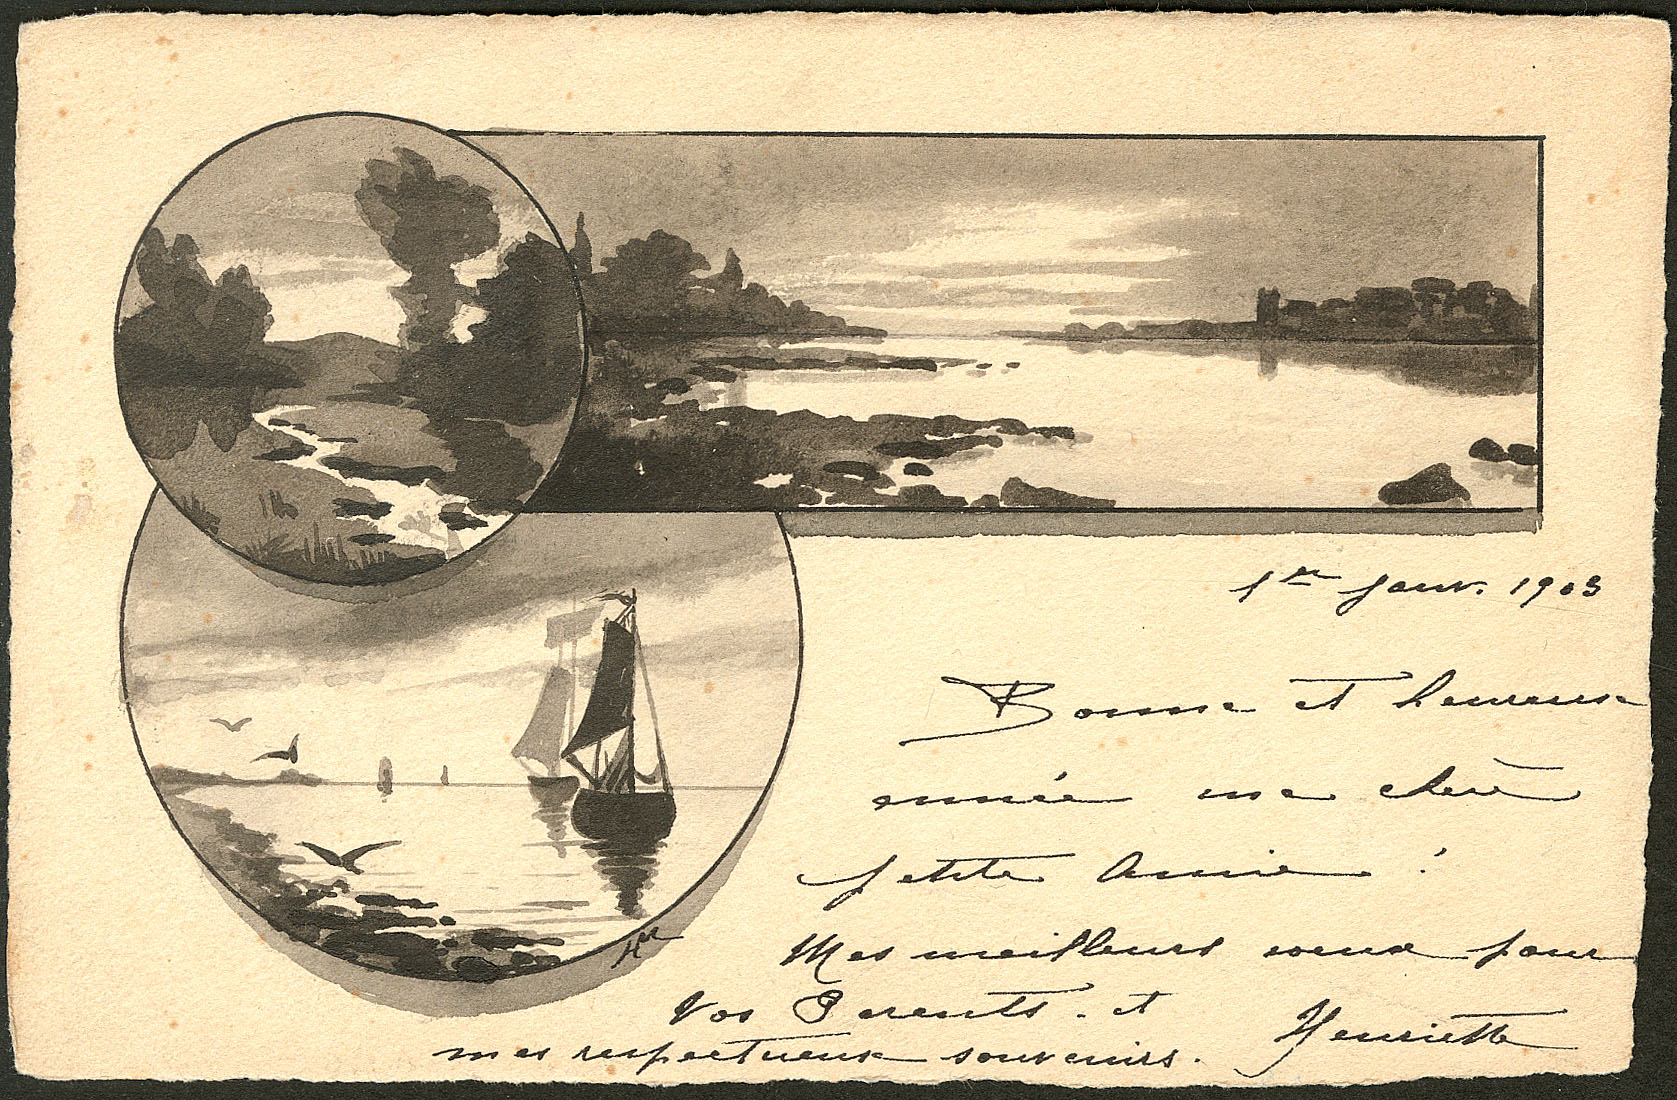 1er Janv. 1903
Bonne et heureuse
année ma chère
petite Amie !
Mes meilleurs voeux pour
Vos Parents. et
mes respectueux souvenirs.
Henriette